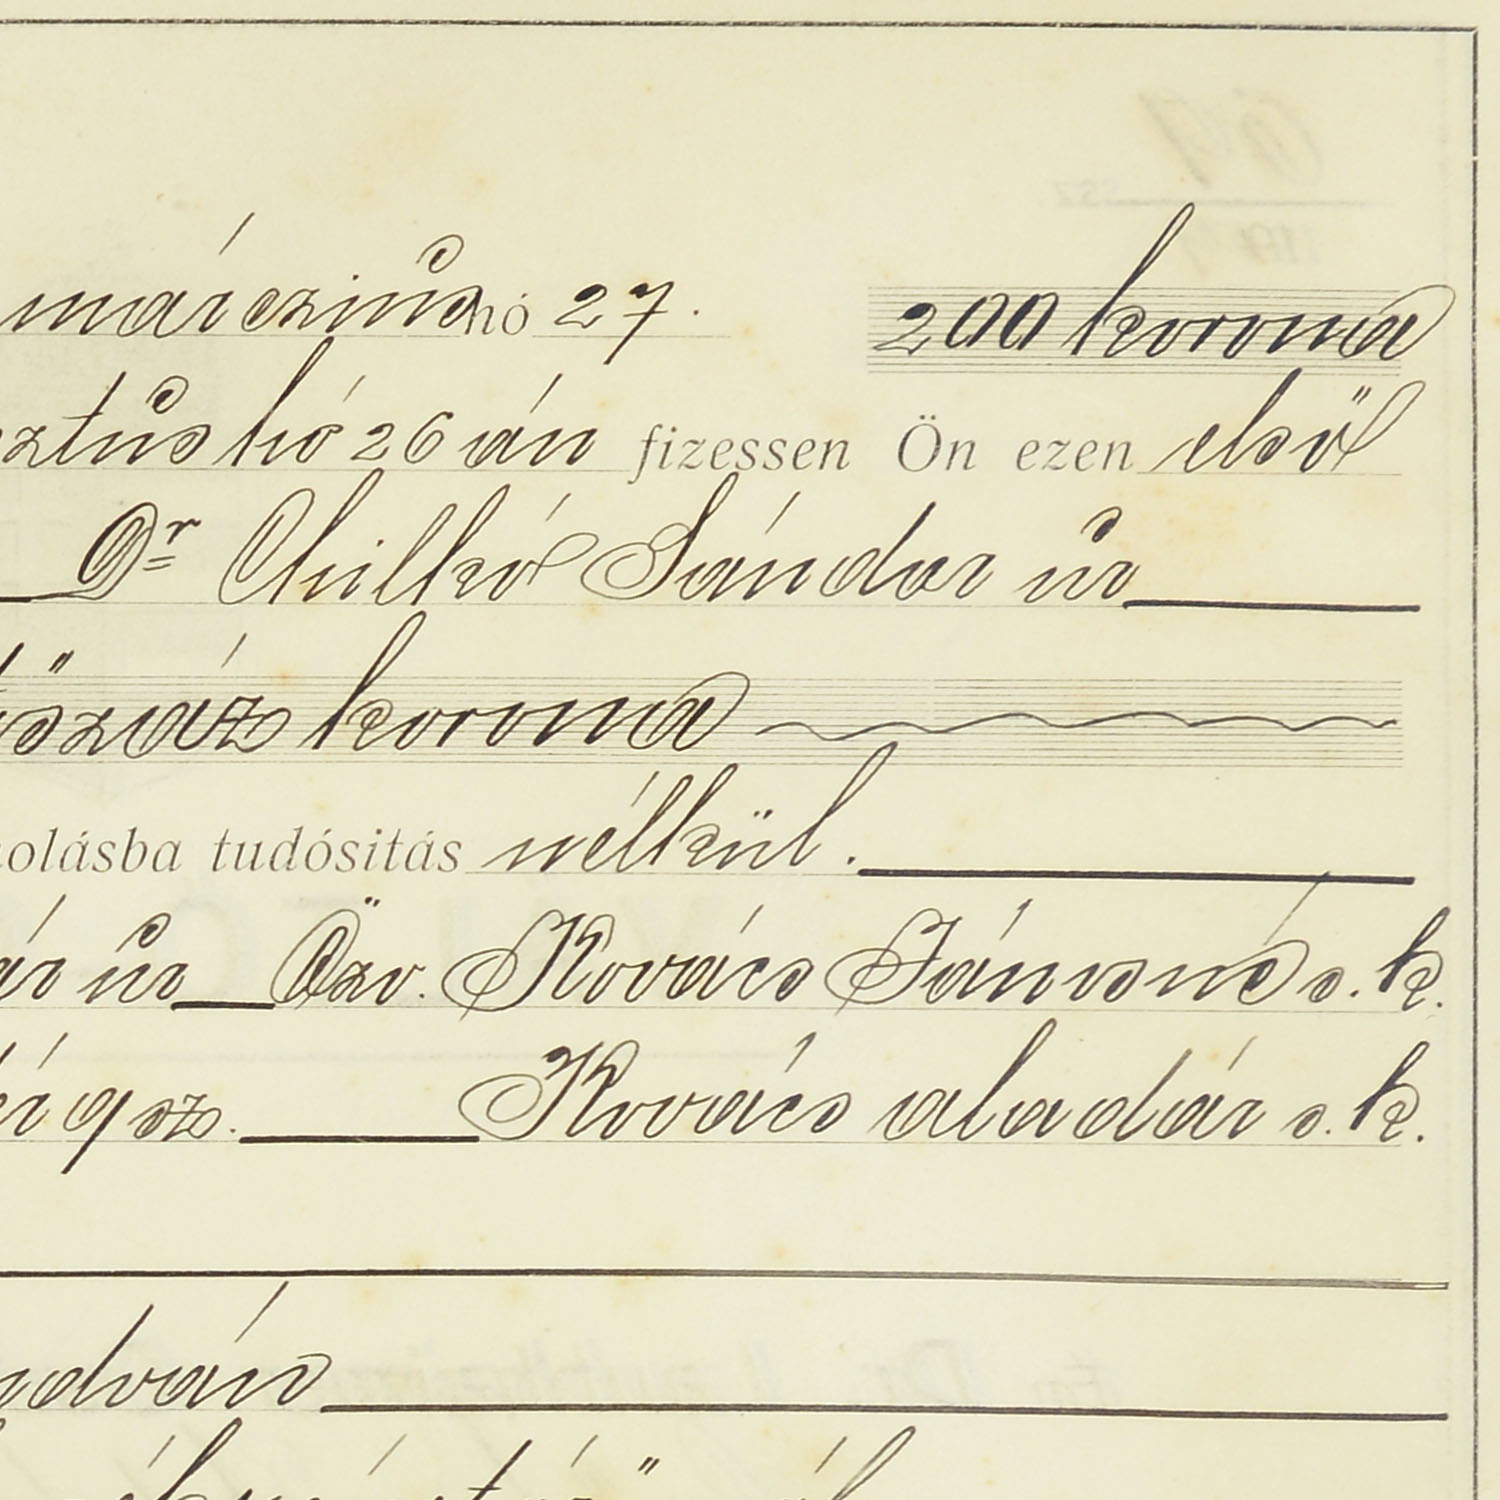 márczius hó 27. 200 korona
sztus hó 26 án fizessen Ön ezen első
Dr Chilkó Sándor úr
tőszáz korona
olásba tudósitás nélkül.
ár úr Özv. Kovács Jánosné s. k.
9 sz. Kovács aladár s. k.